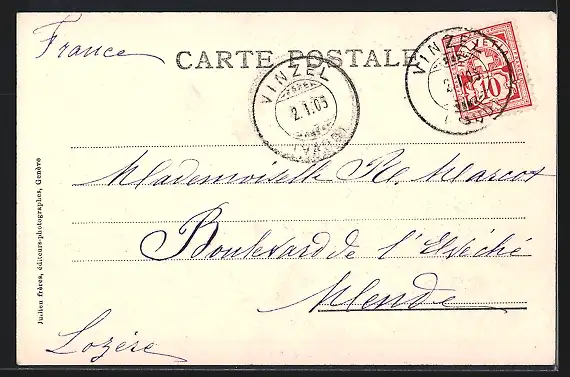 France
CARTE POSTALE
VINZEL
2.I.05
(VAUD)
VINZEL
2.I.05
10
Mademoiselle
Boulevard de l'Evêché
Mende
Lozère
Jullien frères, éditeurs-photographes, Genève